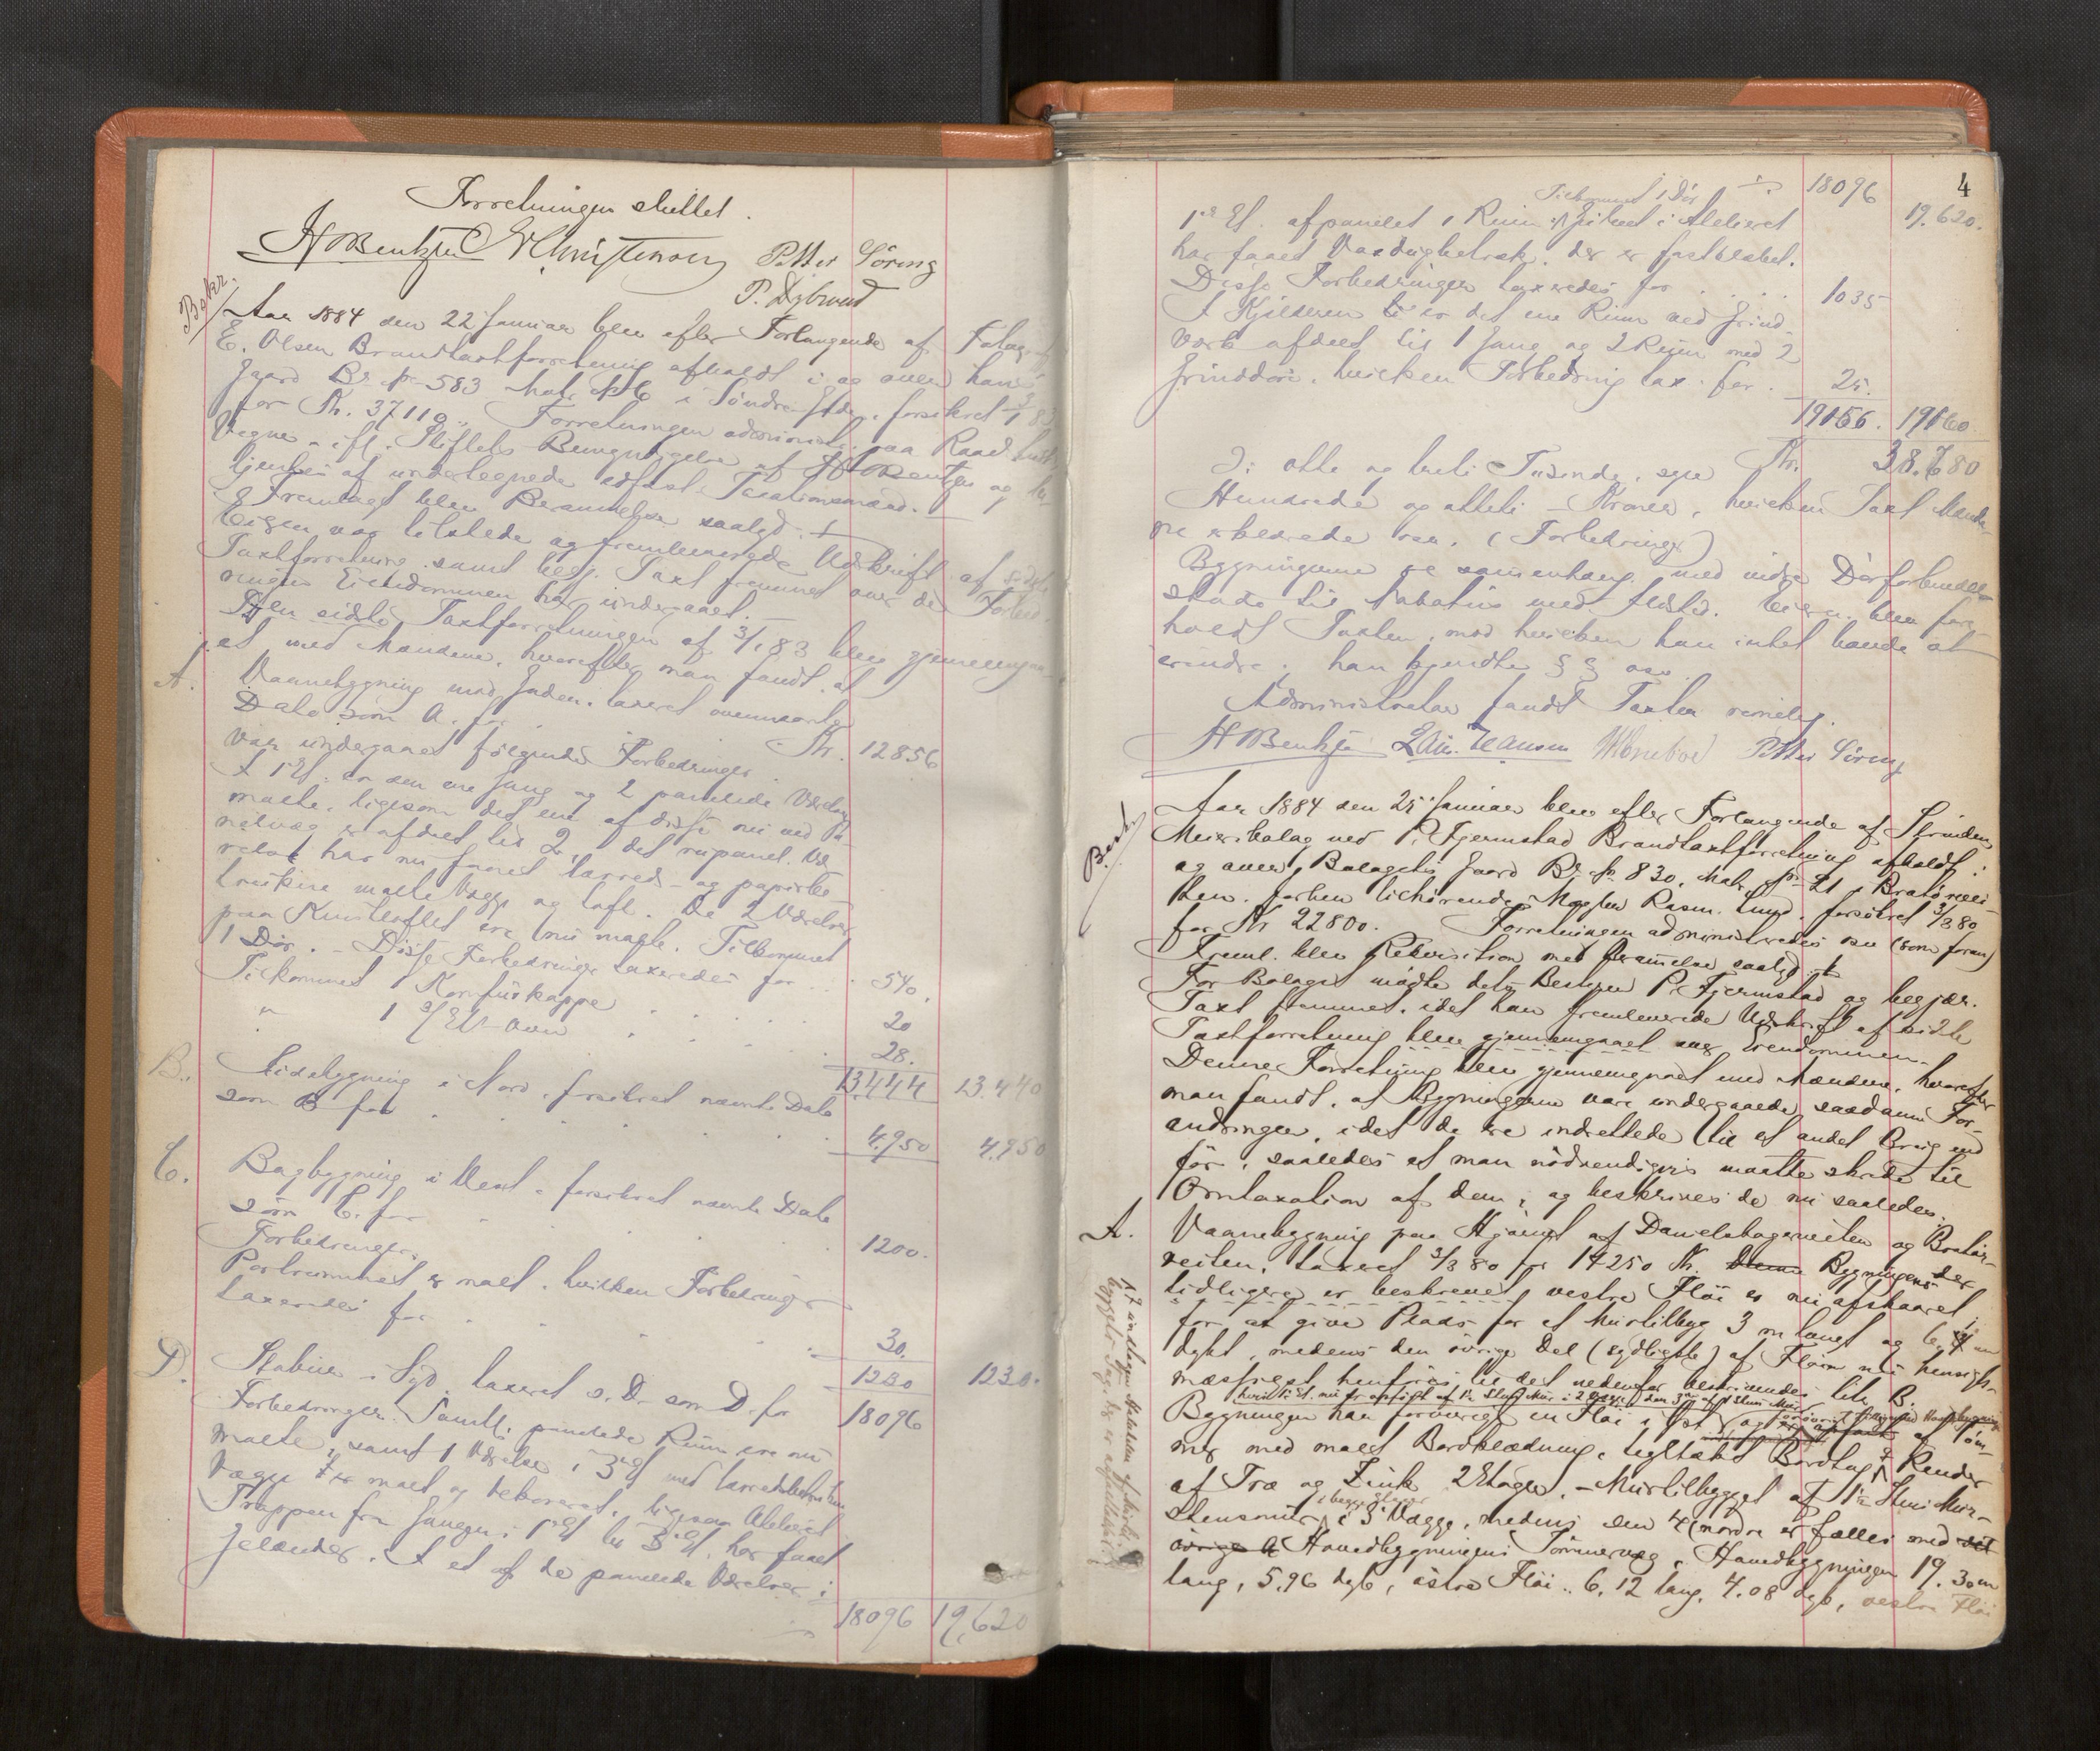 Forretningen sluttet.
HBentzen E Christensen Petter Söring
P. Dybvad
Bekr.
Aar 1884 den 22 Januar blev efter Forlangende af Fotograf
E. Olsen Brandtaxtforretning afholdt i og over hans
Gaard Br. № 583 Matr. № 6 i Söndregade, forsikret 3/1 83
for Kr. 37110. Forretningen administr. paa Raadhust.
Vegne ifl. Stiftets Bemyndigelse af HBentzen og be-
tjentes af undertegnede edfæst. Taxationsmænd.
Fremlagt blev Berammelse saalyd. +
Eieren var tilstede og fremleverede Udskrift af sidste
Taxtforretning samt begj. Taxt fremmet over de Forbed-
ringer Eiendommen har undergaaet.
Den sidste Taxtforretningen af 3/1 83 blev gjennemgaa-
et med Mændene, hvorefter man fandt at
A. Vaanebygning mod Gaden, taxeret ovennævnte
Dato som A. for . Kr. 12856
var undergaaet fölgende Forbedringer.
I 1 Et. er den ene Gang og 2 panelede Værelser
malte, ligesom det ene af disse nu ved Pa-
nelvæg er afdelt til 2, det ene panel. Væ-
relse har nu faaet lærred- og papirbe-
trukne malte Vægge og Loft. De 2 Værelser
paa Kvistloftet ere nu malte. Tilkommet
1 Dör. - Disse Forbedringer taxeredes for . . 540.
Tilkommet 1 Komfurkappe . . . . 20
" 1 3/Et Ovn . . . . 28.
13.444 13.440
B. Sidebygning i Nord, forsikret nævnte Dato
som B for . . . . 4.950 4.950
C. Bagbygning i Vest, forsikret nævnte Dato
som C. for . . . . 1200.
Forbedringer.
Portrummet er malt, hvilken Forbedring
taxeredes for . . . . 30.
1230 1230.
D. Stabur i Syd, taxeret s. D. som D. for 18096
Forbedringer. Samtl. panelede Rum ere nu
malte, samt 1 Værelse i 3 Et med lærredsbetrukne
Vægge er malt og dekoreret, ligesaa Atelieret
Trappen fra Gangen i 1 Et til 3 Et. har faaet
Gelænder. I et af de panelede Værelser i
18096 19,620
4
Tilkommet 1 Dör 18096 19.620.
1 Et. afpanelet 1 Rum. Gulvet i Atelieret
har faaet Voxdugbetræk, der er fastklæbet.
Disse Forbedringer taxeredes for . . . . 1035
I Kjelderen er det ene Rum ved Grind-
værk afdelt til 1 Gang og 2 Rum med 2
Grinddöre, hvilken Forbedring tax. for . 25.
19156. 19160
Kr. 38.780
D: otte og treti Tusinde, syv
Hundrede og otteti - Kroner, hvilken Taxt Mænde-
ne erklærede sva. (Forbedringer)
Bygningerne ere sammenhæng. med indre Dörforbindelse
Eieren blev fore-
holdt Taxten, mod hvilken han intet havde at
erindre; han kjendte §§ osv.
Administrator fandt Taxten rimelig.
HBentzen L Chr. Hansen Petter Söring
Besk.
Aar 1884 den 25 Januar blev efter Forlangende af Strinden
Meieribolag ved P. Fjermstad Brandtaxtforretning afholdt i
og over Bolagets Gaard Br. № 830, Matr. № 21 i Bratörvei-
ten, forhen tilhörende Mægler Rasm. Lund, forsikret 3/3 80
for Kr 22800. Forretningen administredes osv (som foran)
Freml. blev Rekvisition med Berammelse saalyd. +
For Bolaget mödte dets Bestyrer P. Fjermstad og begjær.
Taxt fremmet, idet han fremleverede Udskrift af sidste
Taxtforretning blev gjennemgaaet over Eiendommen.
Denne Forretning blev gjennemgaaet med Mændene, hvorefter
man fandt, at Bygningerne vare undergaaede saadanne For-
andringer, idet de ere indrettede til et andet Brug end
för, saaledes at man nödvendigvis maatte skride til
Omtaxation af dem, og beskrives de nu saaledes.
A. Vaanebygning paa Hjörnet af Danielsbagerveiten og Bratör-
veiten, taxeret 3/3 80 for 14250 Kr. Denne Bygningens der
tidligere er beskrevet vestre Flöi er nu afskaaret
for at give Plads for et Murtilbyg 3 m langt og 6,4 m
dybt, medens den övrige Del (sydligste) af Flöien nu hensigts-
mæssigst henföres til det nedenfor beskrivendes Litr. B.
Bygningen har forövrigt en Flöi i Öst og er opfört af Töm-
mer med malet Bordklædning, teglhængt Bordtag, Render
af Træ og Zink 2 Etager. - Murtilbygget af 1½ Stens Mur-
i begge Etager
Stensmur i 3 Vægge, medens den 4 (nordre er fælles med det
övrige A Hovedbygningens Tömmervæg. Hovedbygningen 19.30 m
lang, 5.96 dyb, östre Flöi 6.12 lang, 4.08 dyb, vestre Flöi